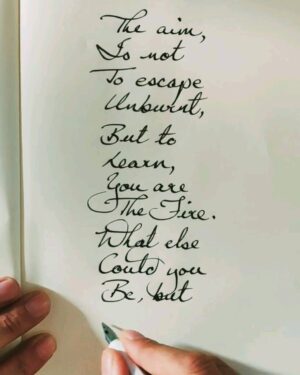 The aim,
Is not
To escape
Unburnt,
But to
Learn,
You are
The Fire.
What else
Could you
Be, but